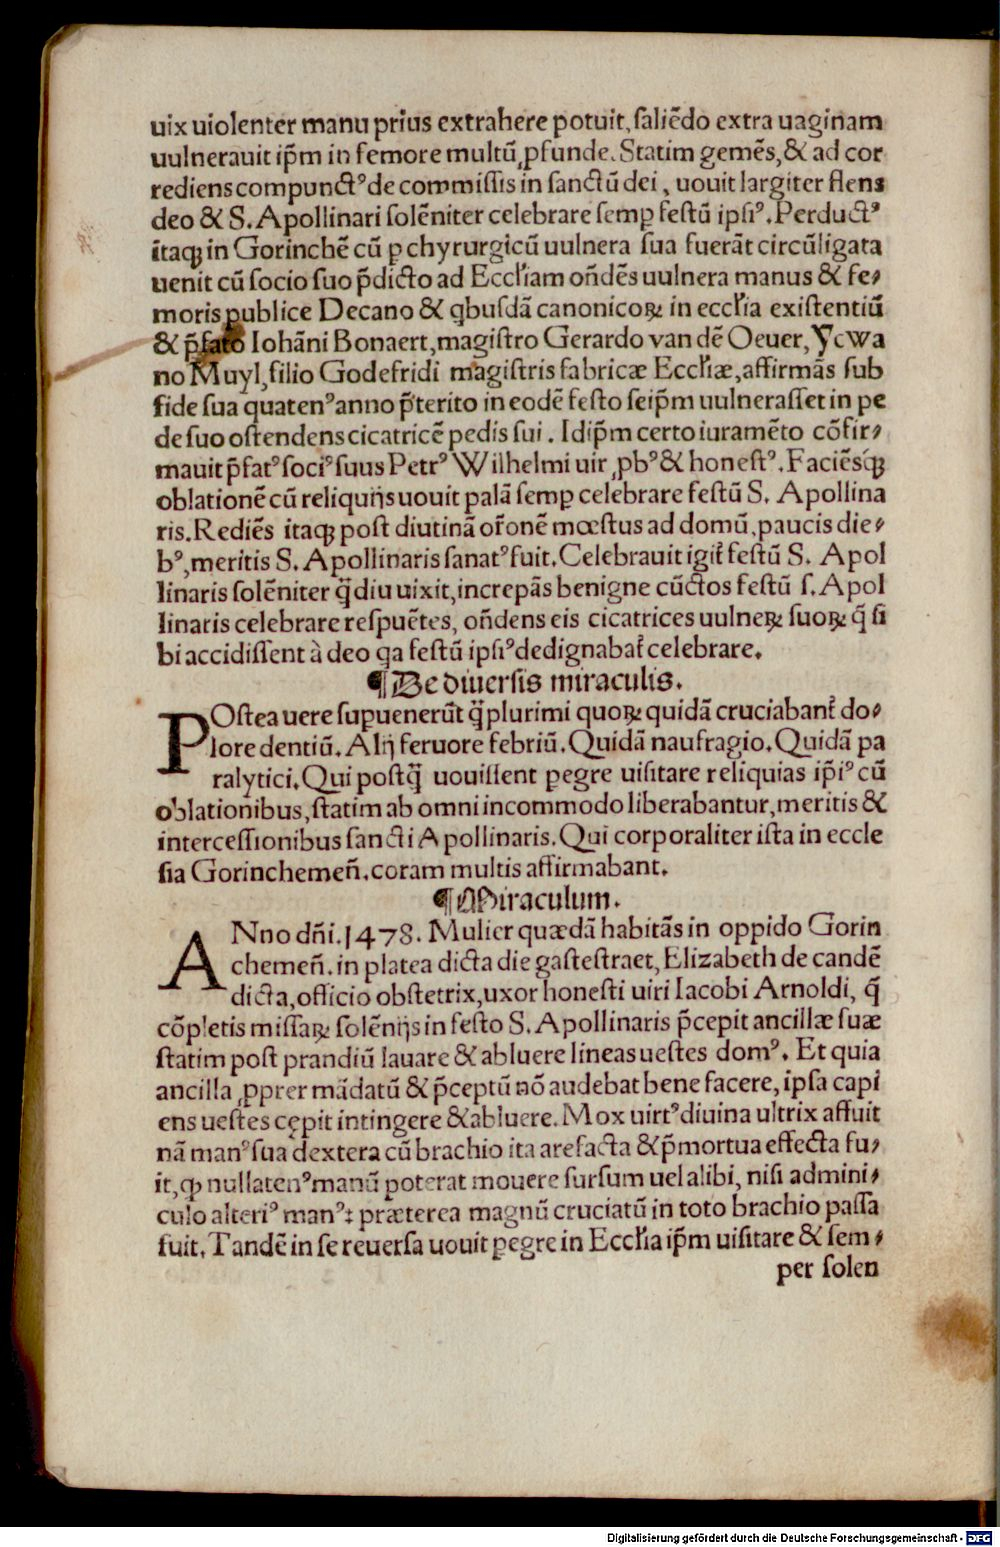 uix uiolenter manu prius extrahere potuit, ſaliēdo extra uaginam
uulnerauit ip̄m in femore multū ꝓfunde. Statim gemēs, & ad cor
rediens compunctꝰ de commiſſis in ſanctū dei, uouit largiter flens
deo & S. Apollinari ſolēniter celebrare ſemꝑ feſtū ipſiꝰ. Perductꝰ
itaqꝫ in Gorinchē cū ꝑ chyrurgicū uulnera ſua fuerāt circūligata
uenit cū ſocio ſuo p̄dicto ad Eccłiam oñdēs uulnera manus & fe⸗
moris publice Decano & qbuſdā canonicoꝝ in eccłia exiſtentiū
& p̄fato Iohāni Bonaert, magiſtro Gerardo van dē Oeuer, Ycwa
no Muyl, filio Godefridi magiſtris fabricæ Eccłiæ, affirmās ſub
fide ſua quatenꝰ anno p̄terito in eodē feſto ſeip̄m uulneraſſet in pe
de ſuo oſtendens cicatricē pedis ſui. Idip̄m certo iuramēto cōfir⸗
mauit p̄fatꝰ ſociꝰ ſuus Petrꝰ Wilhelmi uir ꝓbꝰ & honeſtꝰ. Faciēsqꝫ
oblationē cū reliquijs uouit palā ſemꝑ celebrare feſtū S. Apollina
ris. Rediēs itaqꝫ poſt diutinā or̄onē mœſtus ad domū, paucis die⸗
bꝰ, meritis S. Apollinaris ſanatꝰ fuit. Celebrauit igit̄ feſtū S. Apol
linaris ſolēniter q̄diu uixit, increpās benigne cūctos feſtū ſ. Apol
linaris celebrare reſpuētes, oñdens eis cicatrices uulneꝝ ſuoꝝ q̄ ſi
bi accidiſſent à deo qa feſtū ipſiꝰ dedignabat̄ celebrare.
¶ De diuerſis miraculis.
POſtea uere ſuꝑuenerūt q̄plurimi quoꝝ quidā cruciabant̄ do⸗
lore dentiū. Alij feruore febriū. Quidā naufragio. Quidā pa
ralytici. Qui poſtq̄ uouiſſent ꝑegre uiſitare reliquias ip̄iꝰ cū
oblationibus, ſtatim ab omni incommodo liberabantur, meritis &
interceſſionibus ſancti Apollinaris. Qui corporaliter iſta in eccle
ſia Gorinchemeñ. coram multis affirmabant.
¶ Miraculum.
ANno dñi. 1478. Mulier quædā habitās in oppido Gorin
chemeñ. in platea dicta die gaſteſtraet, Elizabeth de candē
dicta, officio obſtetrix, uxor honeſti uiri Iacobi Arnoldi, q̄
cōpletis miſſaꝝ ſolēnijs in feſto S. Apollinaris p̄cepit ancillæ ſuæ
ſtatim poſt prandiū lauare & abluere lineas ueſtes domꝰ. Et quia
ancilla ꝓprer mādatū & p̄ceptū nō audebat bene facere, ipſa capi
ens ueſtes cępit intingere & abluere. Mox uirtꝰ diuina ultrix affuit
nā manꝰ ſua dextera cū brachio ita arefacta & p̄mortua effecta fu⸗
it, ꝙ nullatenꝰ manū poterat mouere ſurſum uel alibi, niſi admini⸗
culo alteriꝰ manꝰ: præterea magnū cruciatū in toto brachio paſſa
fuit. Tandē in ſe reuerſa uouit ꝑegre in Eccłia ip̄m uiſitare & ſem⸗
per ſolen
Digitalisierung gefördert durch die Deutsche Forschungsgemeinschaft - DFG